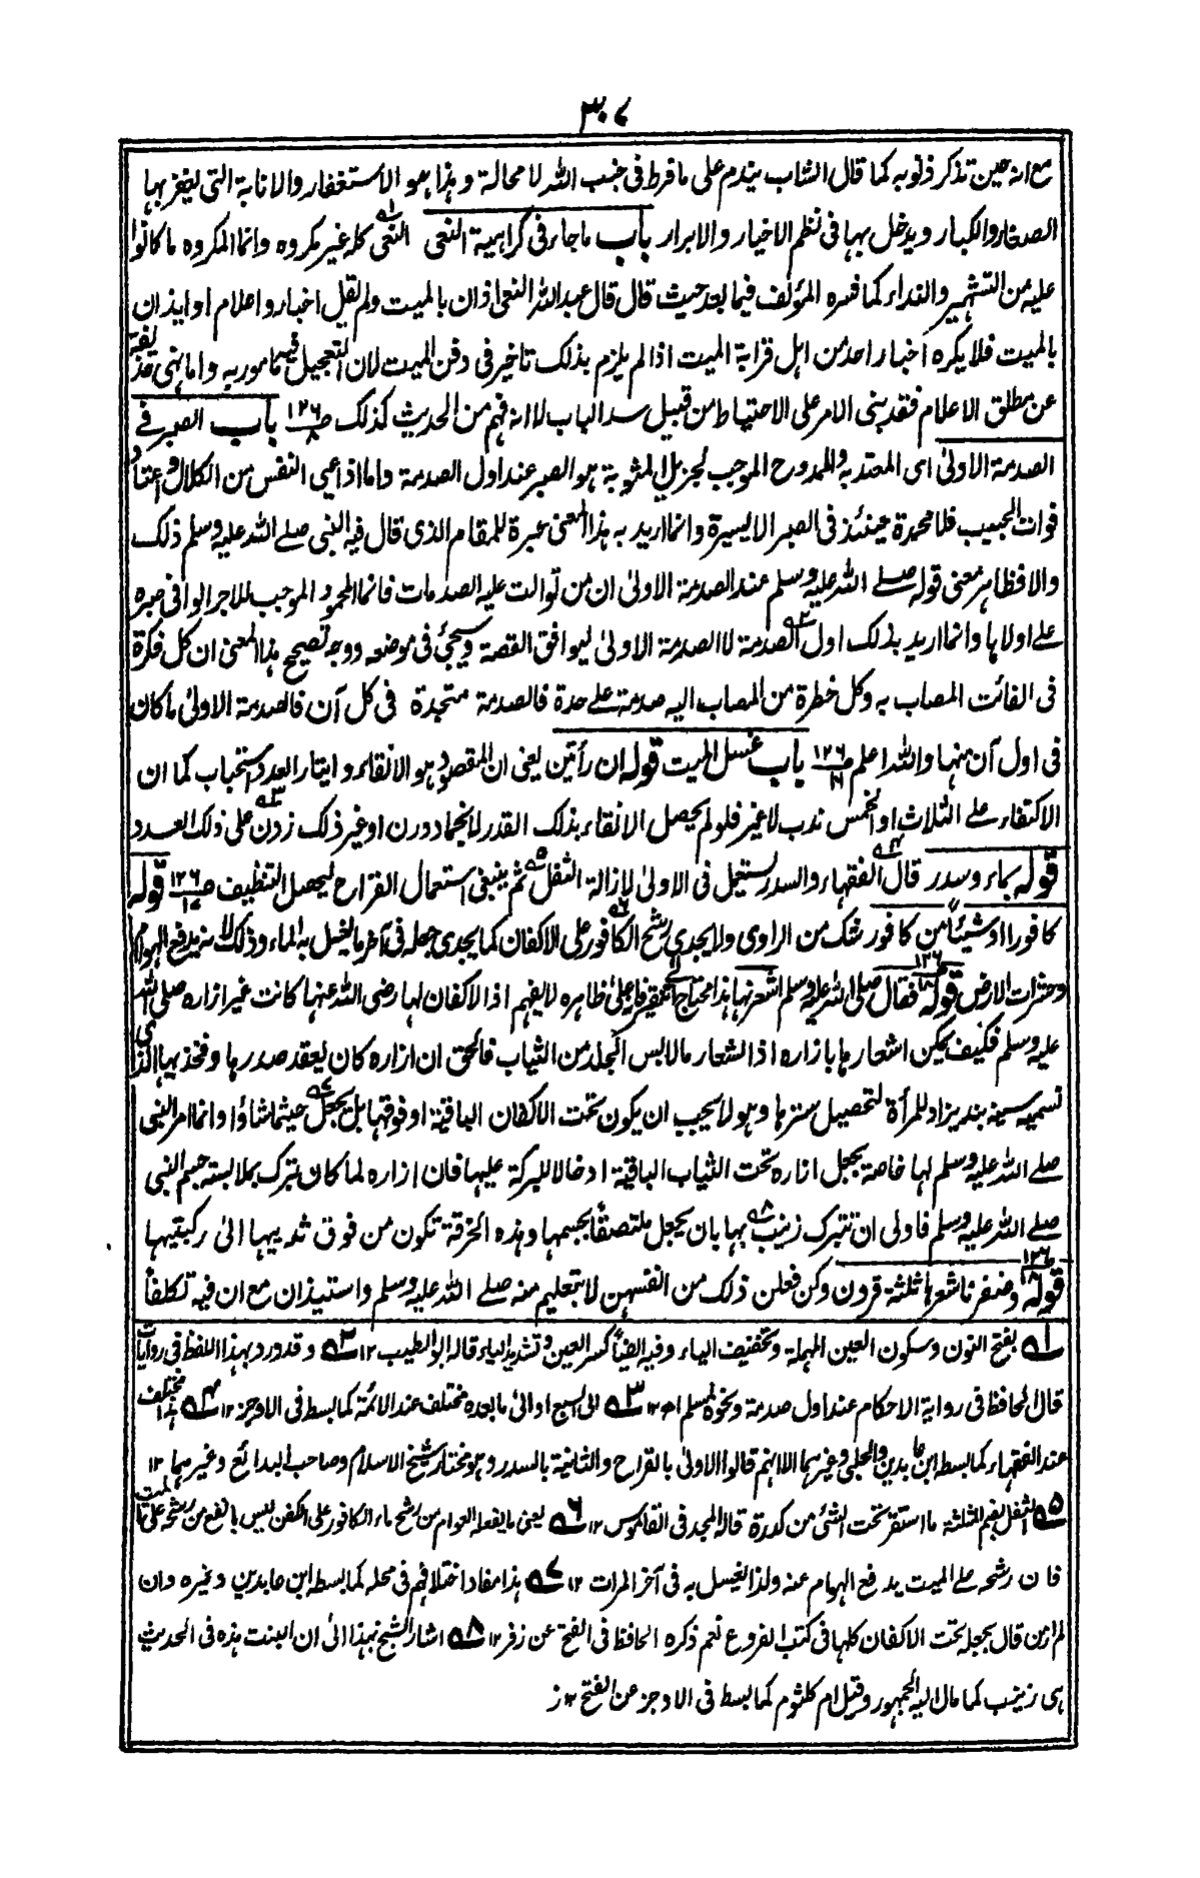 ٣٠٧
مع انه حين تذكر ذنوبه كما قال الشاب يندم على ما فرط فى جنب الله لا محالة وهذا هو الاستغفار والانابة التى يغفر بها
الصغار والكبار ويدخل بها فى نظم الاخيار والابرار باب ما جاء فى كراهية النعى النعى له١ كله غير مكروه وانما المكروه ما كانوا
عليه من التشهير والنداء كما فسره المؤلف فيما بعد حيث قال قال عبد الله النعى اذان بالميت ولم يقل اخبار واعلام او ايذان
بالميت فلا يكره اخبار احد من اهل قرابة الميت اذا لم يلزم بذلك تاخير فى دفن الميت لان التعجيل فيه مامور به واما نهى حذيفة
عن مطلق الاعلام فقد بنى الامر على الاحتياط من قبيل سد الباب لا انه فهم من الحديث كذلك ص١٢٦ باب الصبر فى
الصدمة الاولى اى المعتد به والممدوح الموجب لجزيل المثوبة هو الصبر عند اول الصدمة واما اذا عيى النفس من الكلال واعتاد
فوات الحبيب فلا محمدة حينئذ فى الصبر الا يسيرة وانما اريد به هذا المعنى عبرة للمقام الذى قال فيه النبى صلے الله عليه وسلم ذلك
والا فظاهر معنى قوله صلے الله عليه وسلم عند الصدمة الاولى ان من توالت عليه الصدمات فانما المحمود الموجب للاجر الوافى صبره
على اولاها وانما اريد بذلك اول ٢ الصدمة لا الصدمة الاولى ليوافق القصة وسيجئ فى موضعه ووجه تصحيح هذا المعنى ان كل فكرة
فى الفائت المصاب به وكل خطرة من المصاب اليه صدمة على حدة فالصدمة متجددة فى كل آن فالصدمة الاولى ما كان
فى اول آن منها والله اعلم ص١٢٦ باب غسل الميت قوله ان رأيتن يعنى ان المقصود هو الانقاء وايتار العدد استحباب كما ان
الاكتفاء على الثلاث او الخمس ٣ ندب لا غير فلو لم يحصل الانقاء بذلك القدر لانجماد درن او غير ذلك زدن على ذلك العدد
قوله بماء وسدر قال ٤ الفقهاء والسدر يستعمل فى الاولى لازالة الثفل ٥ ثم ينبغى استعمال القراح ليحصل التنظيف ص١٢٦ قوله
كافورا او شيئا من كافور شك من الراوى ولا يجدى رشح ٦ الكافور على الاكفان كما يجدى جعله فى آخر ما يغسل به الماء وذلك لانه يدفع الهوام
وحشرات الارض قوله فقال صلى الله عليه وسلم اشعرنها هذا محتاج الى تنقير فانه على ظاهره لا يفهم اذ الاكفان لها رضى الله عنها كانت غير ازاره صلى الله
عليه وسلم فكيف يمكن اشعارها بازاره اذ الشعار ما لابس الجلد من الثياب فالحق ان ازاره كان يعقد صدرها وفخذيها الذى
تسميه سينه بند يزاد للمرأة لتحصيل سترها وهو لا يجب ان يكون تحت الاكفان الباقية او فوقها بل يجعل ٧ حيثما شاؤا وانما امر النبى
صلے الله عليه وسلم لها خاصة بجعل ازاره تحت الثياب الباقية ادخالا للبركة عليها فان ازاره لما كان تبرك بملابسته جسم النبى
صلے الله عليه وسلم فاولى ان تتبرك زينب ٨ بها بان يجعل ملتصقا بجسمها وهذه الخرقة تكون من فوق ثدييها الى ركبتيها
قوله وضفرنا شعرها ثلثة قرون وكن فعلن ذلك من انفسهن لا بتعليم منه صلے الله عليه وسلم واستيذان مع ان فيه تكلفا
له١ بفتح النون وسكون العين المهملة وتخفيف الياء وفيه ايضا كسر العين وتشديد الياء قاله ابو الطيب ١٢ له٢ وقد ورد بهذا اللفظ فى روايات
قال الحافظ فى رواية الاحكام عند اول صدمة ونحوه لمسلم اه ١٢ له٣ الى السبع اوالى ما بعده مختلف عند الائمة كما بسط فى الاوجز ١٢ له٤ مختلف
عند الفقهاء كما بسط ابن عابدين والحلبى وغيرهما الا انهم قالوا الاولى بالقراح والثانية بالسدر وهو مختار شيخ الاسلام وصاحب البدائع وغيرهما ١٢
له٥ الثفل بضم المثلثة ما استقر تحت الشئ من كدرة قاله المجد فى القاموس ١٢ له٦ يعنى ما يفعله العوام من رشح ماء الكافور على الكفن ليس بانفع من رشحه على الميت
فان رشحه على الميت يدفع الهوام عنه ولذا يغسل به فى آخر المرات ١٢ له٧ هذا مفاد اختلافهم فى محله كما بسط ابن عابدين وغيره وان
لم ار من قال بجعله تحت الاكفان كلها فى كتب الفروع نعم ذكره الحافظ فى الفتح عن زفر ١٢ له٨ اشار الشيخ بهذا الى ان البنت هذه فى الحديث
هى زينب كما مال اليه الجمهور وقيل ام كلثوم كما بسط فى الاوجز عن الفتح ١٢ ز